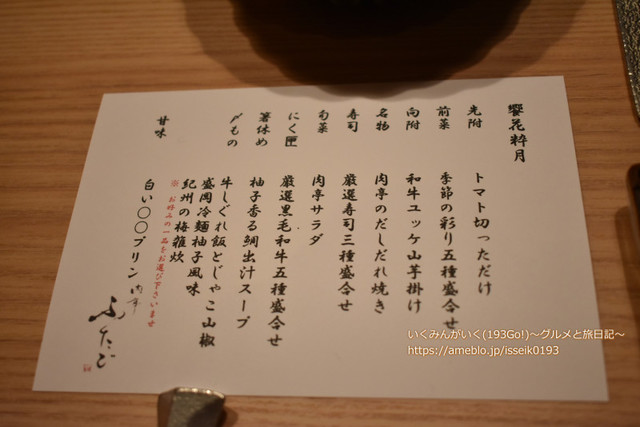 饗花粋月
先附 トマト切っただけ
前菜 季節の彩り五種盛合せ
向附 和牛ユッケ山芋掛け
名物 肉亭のだしだれ焼き
寿司 厳選寿司三種盛合せ
旬菜 肉亭サラダ
にく匣 厳選黒毛和牛五種盛合せ
箸休め 柚子香る鯛出汁スープ
〆もの 牛しぐれ飯とじゃこ山椒
盛岡冷麺柚子風味
紀州の梅雑炊
※お好みの一品をお選び下さいませ
甘味 白い〇〇プリン
肉亭
ふたご
いくみんがいく(193Go!)～グルメと旅日記～
https://ameblo.jp/isseik0193